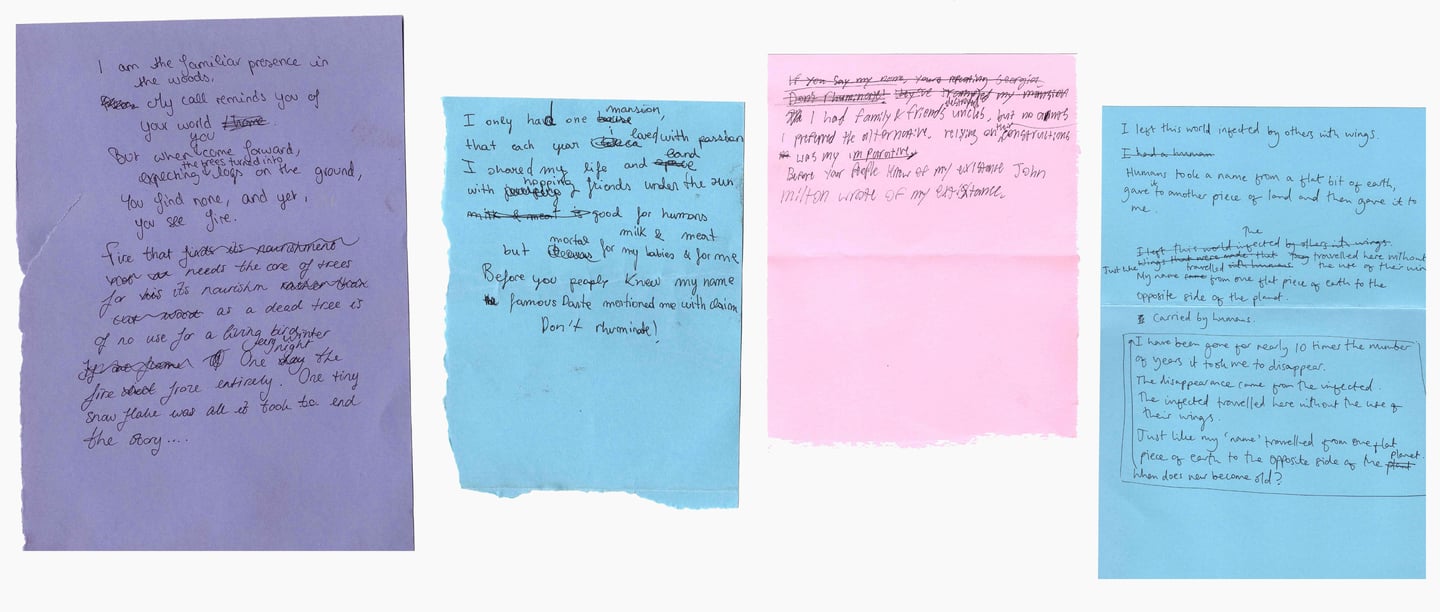 I am the familiar presence in
the woods.
My call reminds you of
your world
you
But when come forward,
the trees turned into
expecting logs on the ground,
You find none, and yet,
you see fire.
Fire that finds its nourishment
needs the core of trees
for its nourish rather than
as a dead tree is
of no use for a living bird.
very winter
night
One day the
fire froze entirely. One tiny
snow flake was all it took to end
the story....
mansion,
I only had one house
i loved with passion
that each year
land
I shared my life and space
hopping
with friends under the sun
milk & meat is good for humans
mortal milk & meat
but for my babies & for me
Before you people knew my name
famous Dante mentioned me with claim
Don't rhuminate!
If you say my name, you're repeating Georgia.
Don't rhuminate! They've trampled my mansion
destroyed
I had family & friends uncles, but no
I preferred the alternative. relying on constructions
was my imperative,
Before your People knew of my existance John
milton wrote of my existance.
I left this world infected by others with wings.
I had a human
Humans took a name from a flat bit of earth,
gave it to another piece of land and then gave it to
me.
The
I left this world infected by others with wings.
wings that were made that they travelled here without
Just like travelled with humans the use of their win
My name came from one flat piece of earth to the
opposite side of the planet.
carried by humans.
I have been gone for nearly 10 times the number
of years it took me to disappear.
The disappearance came from the infected.
The infected travelled here without the use of
their wings.
Just like my 'name' travelled from one flat
piece of earth to the opposite side of the planet.
When does new become old?